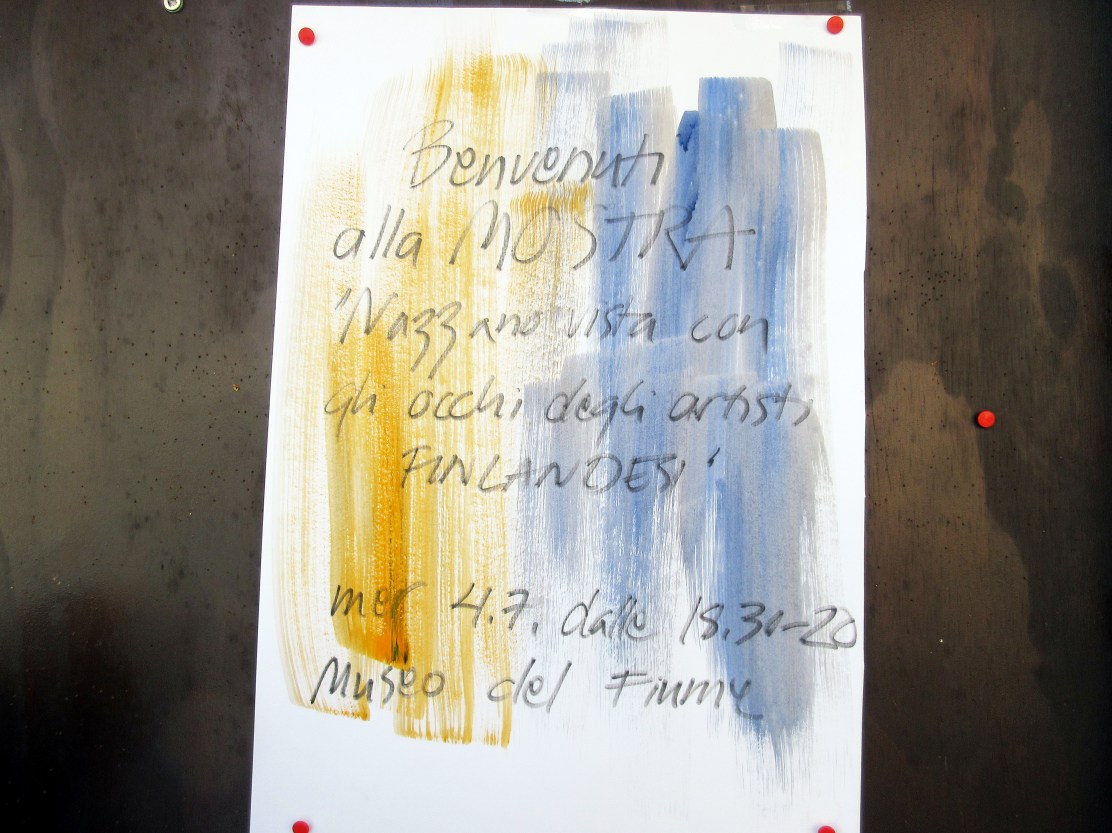 Benvenuti
alla MOSTRA
"Nazzano vista con
gli occhi degli artisti
FINLANDESI"
mer 4.7. dalle 18.30-20
Museo del Fiume